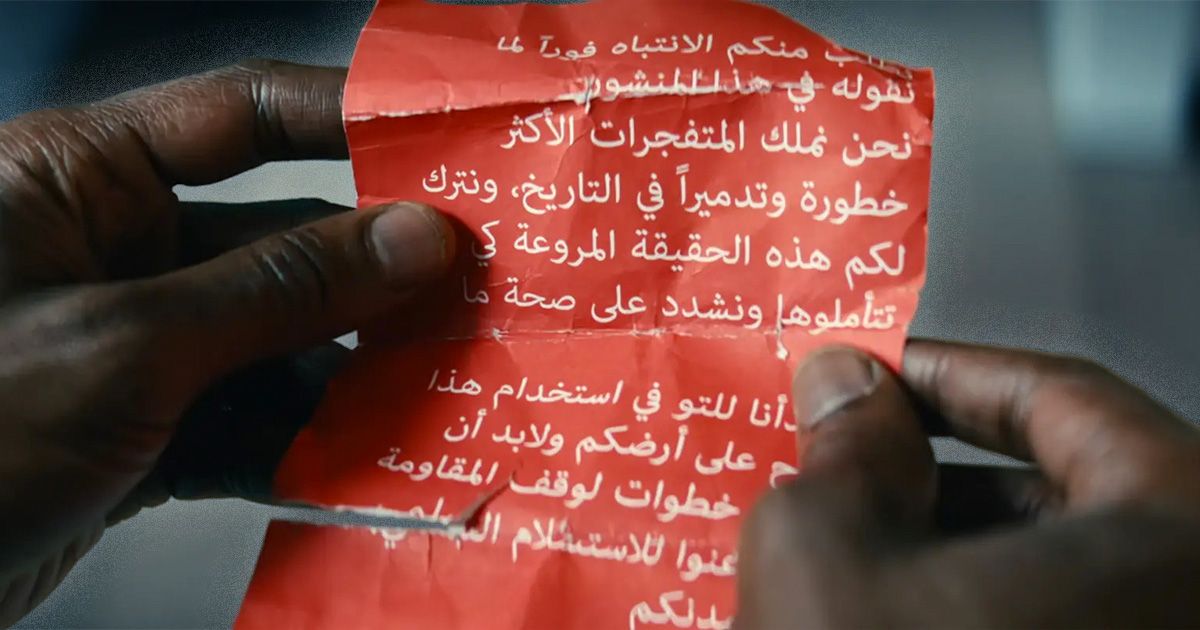 منكم الانتباه فورآ لما
نقوله في هذا المنشور
نحن نملك المتفجرات الأكثر
خطورة وتدميراً في التاريخ، ونترك
لكم هذه الحقيقة المروعة كي
تتأملوها ونشدد على صحة ما
للتو في استخدام هذا
على أرضكم ولابد أن
خطوات لوقف المقاومة
للاستسلام